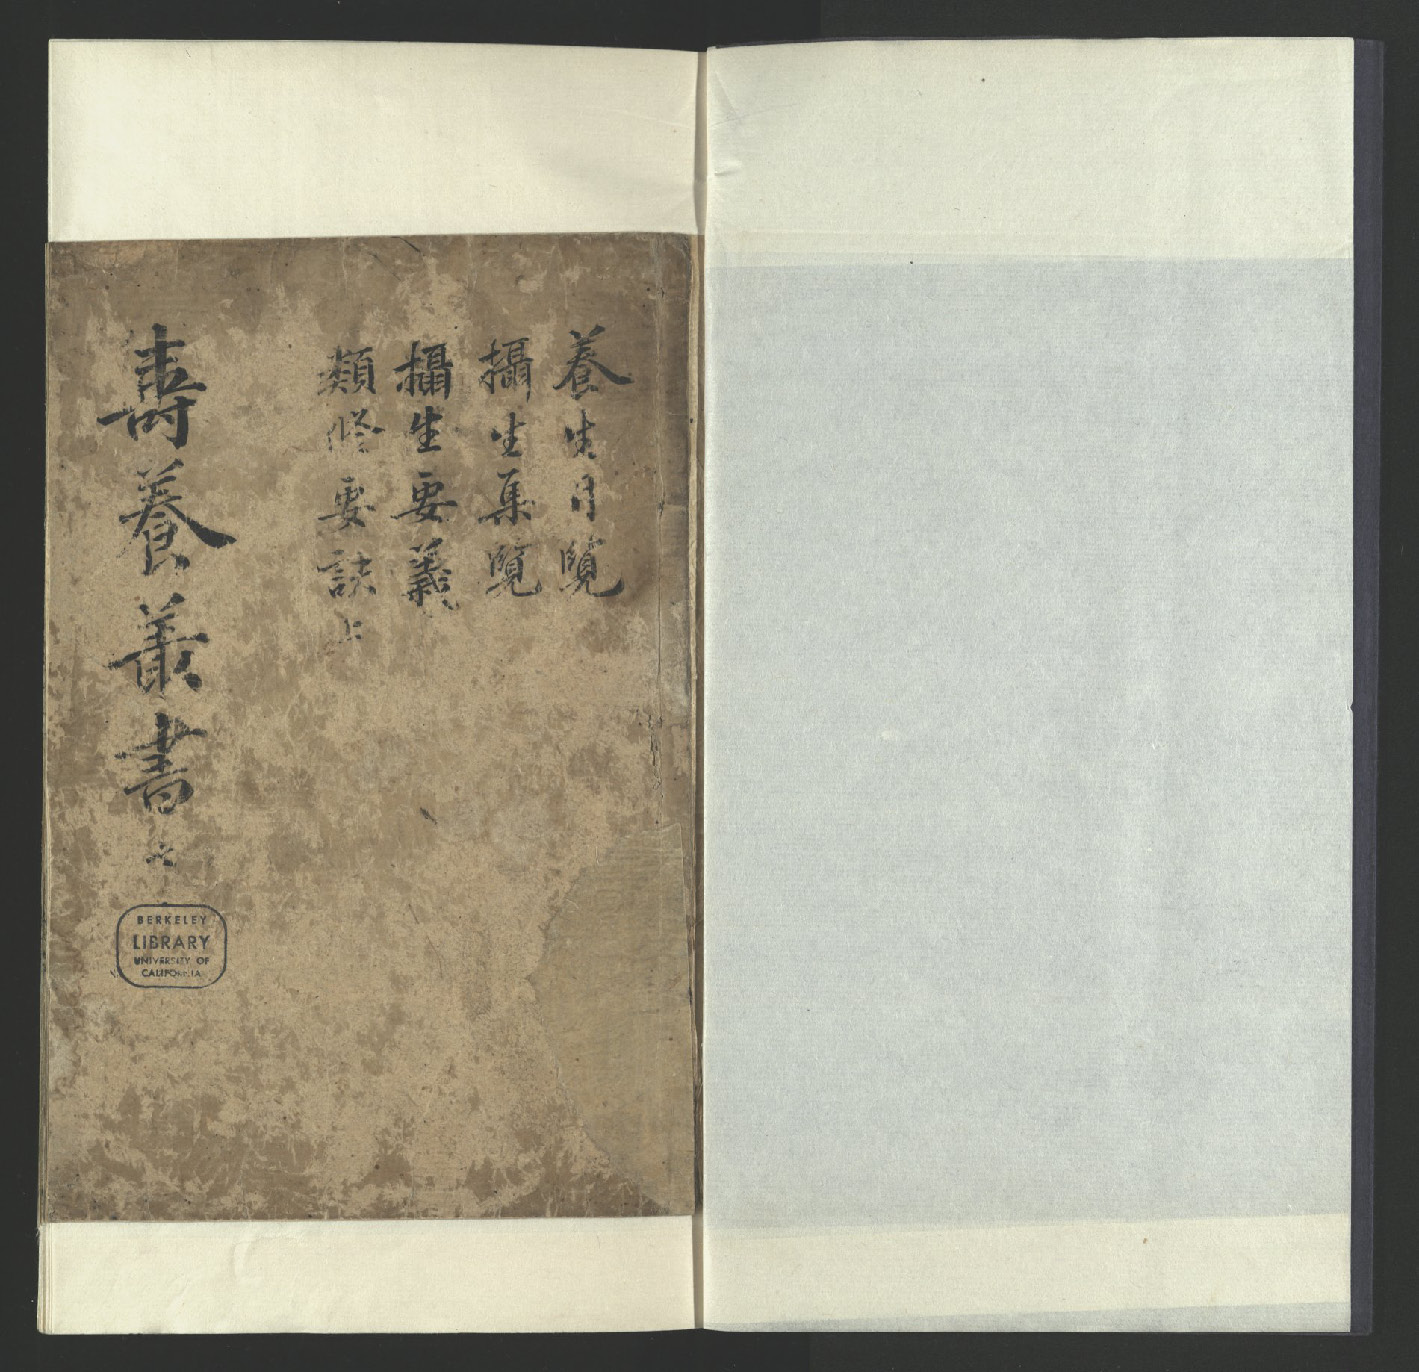 養生月覽
攝生集覽
攝生要義
類修要訣上
壽養叢書
BERKELEY
LIBRARY
UNIVERSITY OF
CALIFORNIA